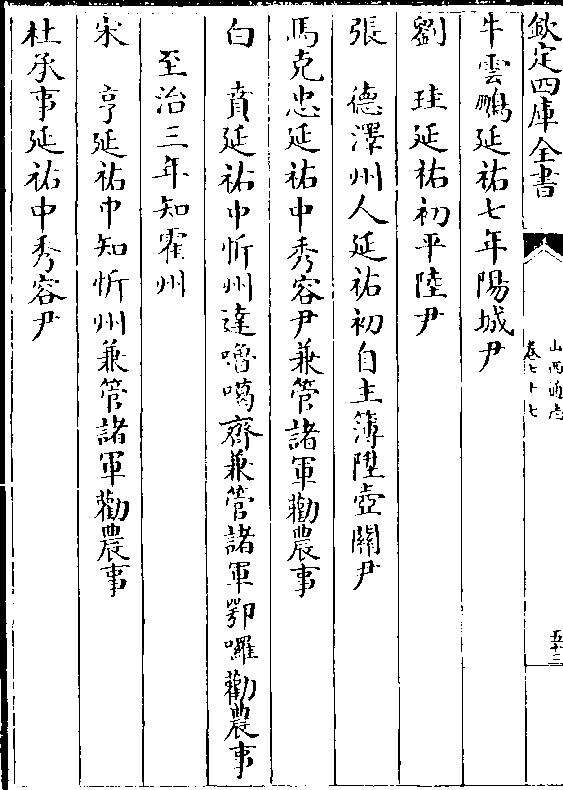 欽定四庫全書
山西通志
卷七十七
五十三
牛雲鵬延祐七年陽城尹
劉　珪延祐初平陸尹
張　德澤州人延祐初自主簿陞壺關尹
馬克忠延祐中秀容尹兼管諸軍勸農事
白　賁延祐中忻州達嚕噶齊兼管諸軍鄂囉勸農事
至治三年知霍州
宋　亨延祐中知忻州兼管諸軍勸農事
杜承事延祐中秀容尹